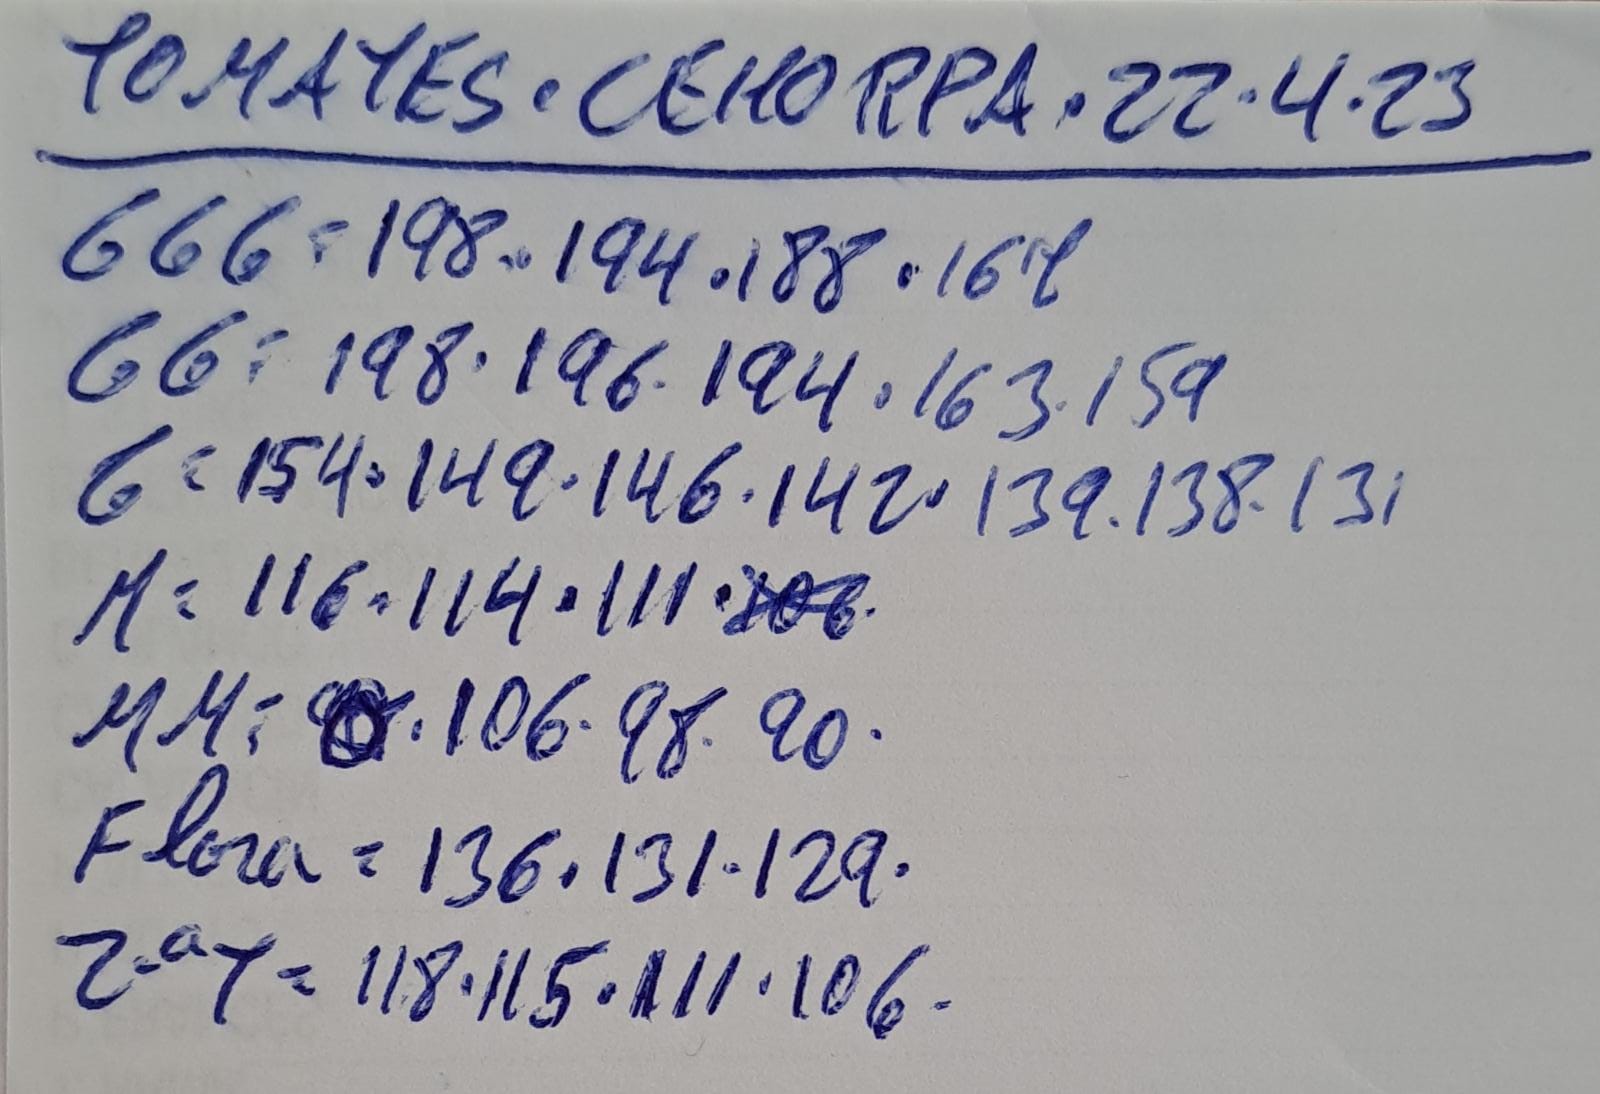 TOMATES · CEHORPA · 22·4·23
GGG = 198 · 194 · 188 · 164
GG = 198 · 196 · 194 · 163 · 159
G = 154 · 149 · 146 · 142 · 139 · 138 · 131
M = 116 · 114 · 111 ·
MM = · 106 · 98 · 90 ·
Flora = 136 · 131 · 129 ·
2ªT = 118 · 115 · 111 · 106 ·